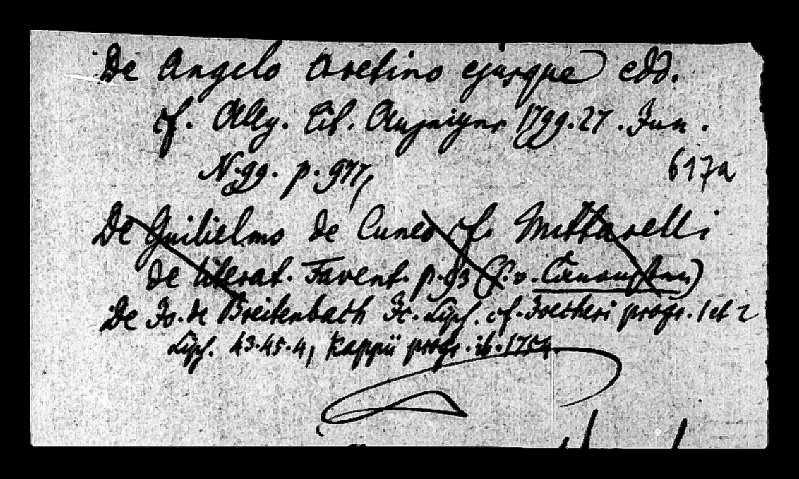 De Angelo Aretino ejusque edd.
cf. Allg. Lit. Anzeiger 1799. 27. Jun.
N. 99. p. 977,
617a
De Guilielmo de Cuneo cf. Mittarelli
de literat. Favent. p. 93 (s. v.
De Jo. de Breitenbach Jc. Lips. cf. progr. 1 et 2
Lips. 43. 45. 4, Kappii progr. ib. 1754.